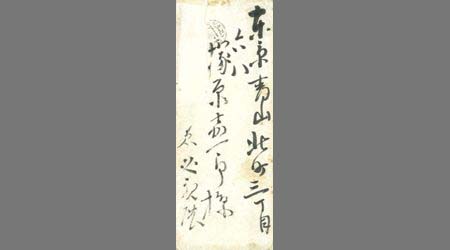 東京青山北町三丁目
六八
塚原嘉一郎様
必親展